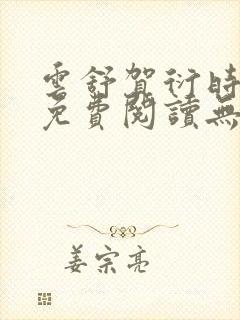 雲舒賀衍時
免費閱讀無
姜宗亮